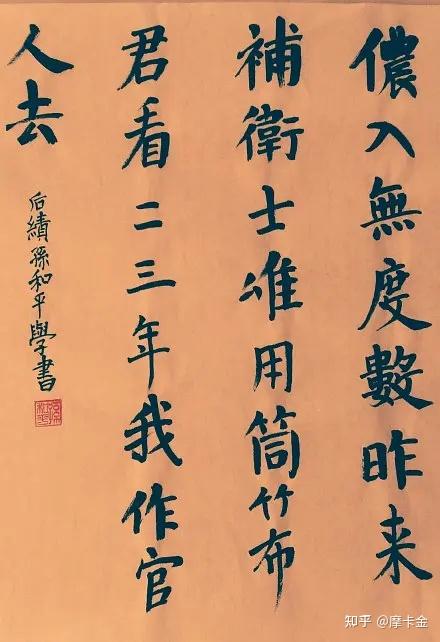 儂入無度數昨来
補衛士唯用筒竹布
君看二三年我作官
人去
后績孫和平學書
知乎 @摩卡金